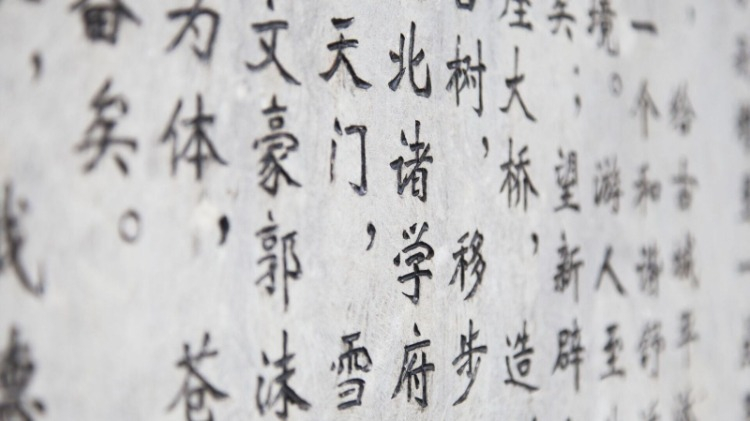 给古城平
一个和谐舒
境。游人至
矣；望新辟
座大桥，造
树，移步
北诸学府
天门，雪
文豪郭沫
为体，苍
矣。